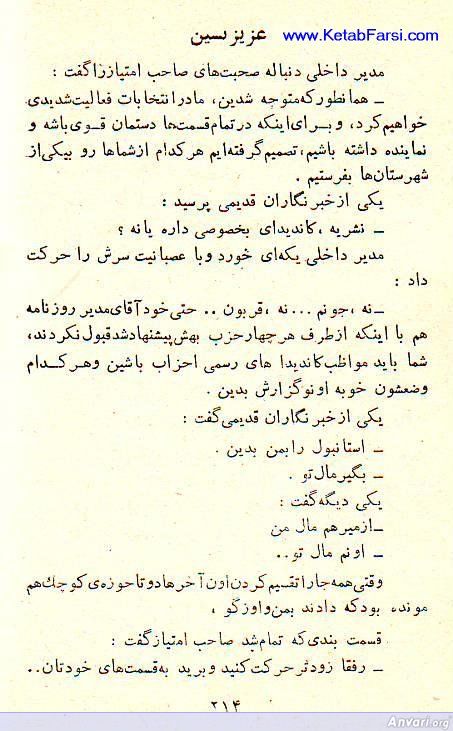 عزیز نسین www.KetabFarsi.com
مدیر داخلی دنباله صحبت‌های صاحب امتیاز را گفت :
ــ همانطور که متوجه شدین، ما در انتخابات فعالیت شدیدی
خواهیم کرد، و بـرای اینکه در تمام قسمت‌ها دستمان قوی باشه و
نماینده داشته باشیم، تصمیم گرفته‌ایم هر کدام از شماها رو بیکی از
شهرستان‌ها بفرستیم .
یکی از خبرنگاران قدیمی پرسید :
ــ نشریه ، کاندیدای بخصوصی داره یا نه ؟
مدیر داخلی یکه‌ای خورد و با عصبانیت سرش را حرکت
داد :
ــ نه ، جونم ... نه ، قربون .. حتی خود آقای مدیر روزنامه
هم با اینکه از طرف هر چهار حزب بهش پیشنهاد شد قبول نکردند،
شما باید مواظب کاندیدا های رسمی احزاب باشین و هر کـدام
وضعشون خوبه اونو گزارش بدین .
یکی از خبرنگاران قدیمی گفت :
ــ استانبول را بمن بدین .
ــ بگیر مال تو .
یکی دیگه گفت :
ــ ازمیر هم مال من
ــ اونم مال تو..
وقتی همه جا را تقسیم کردن اون آخرها دو تا حوزه‌ی کوچك هم
مونده بود که دادند بمن و اوزگو ،
قسمت بندی که تمام شد صاحب امتیاز گفت :
ــ رفقا زودتر حرکت کنید و برید به قسمت‌های خودتان..
۲۱۴
Anvari.org